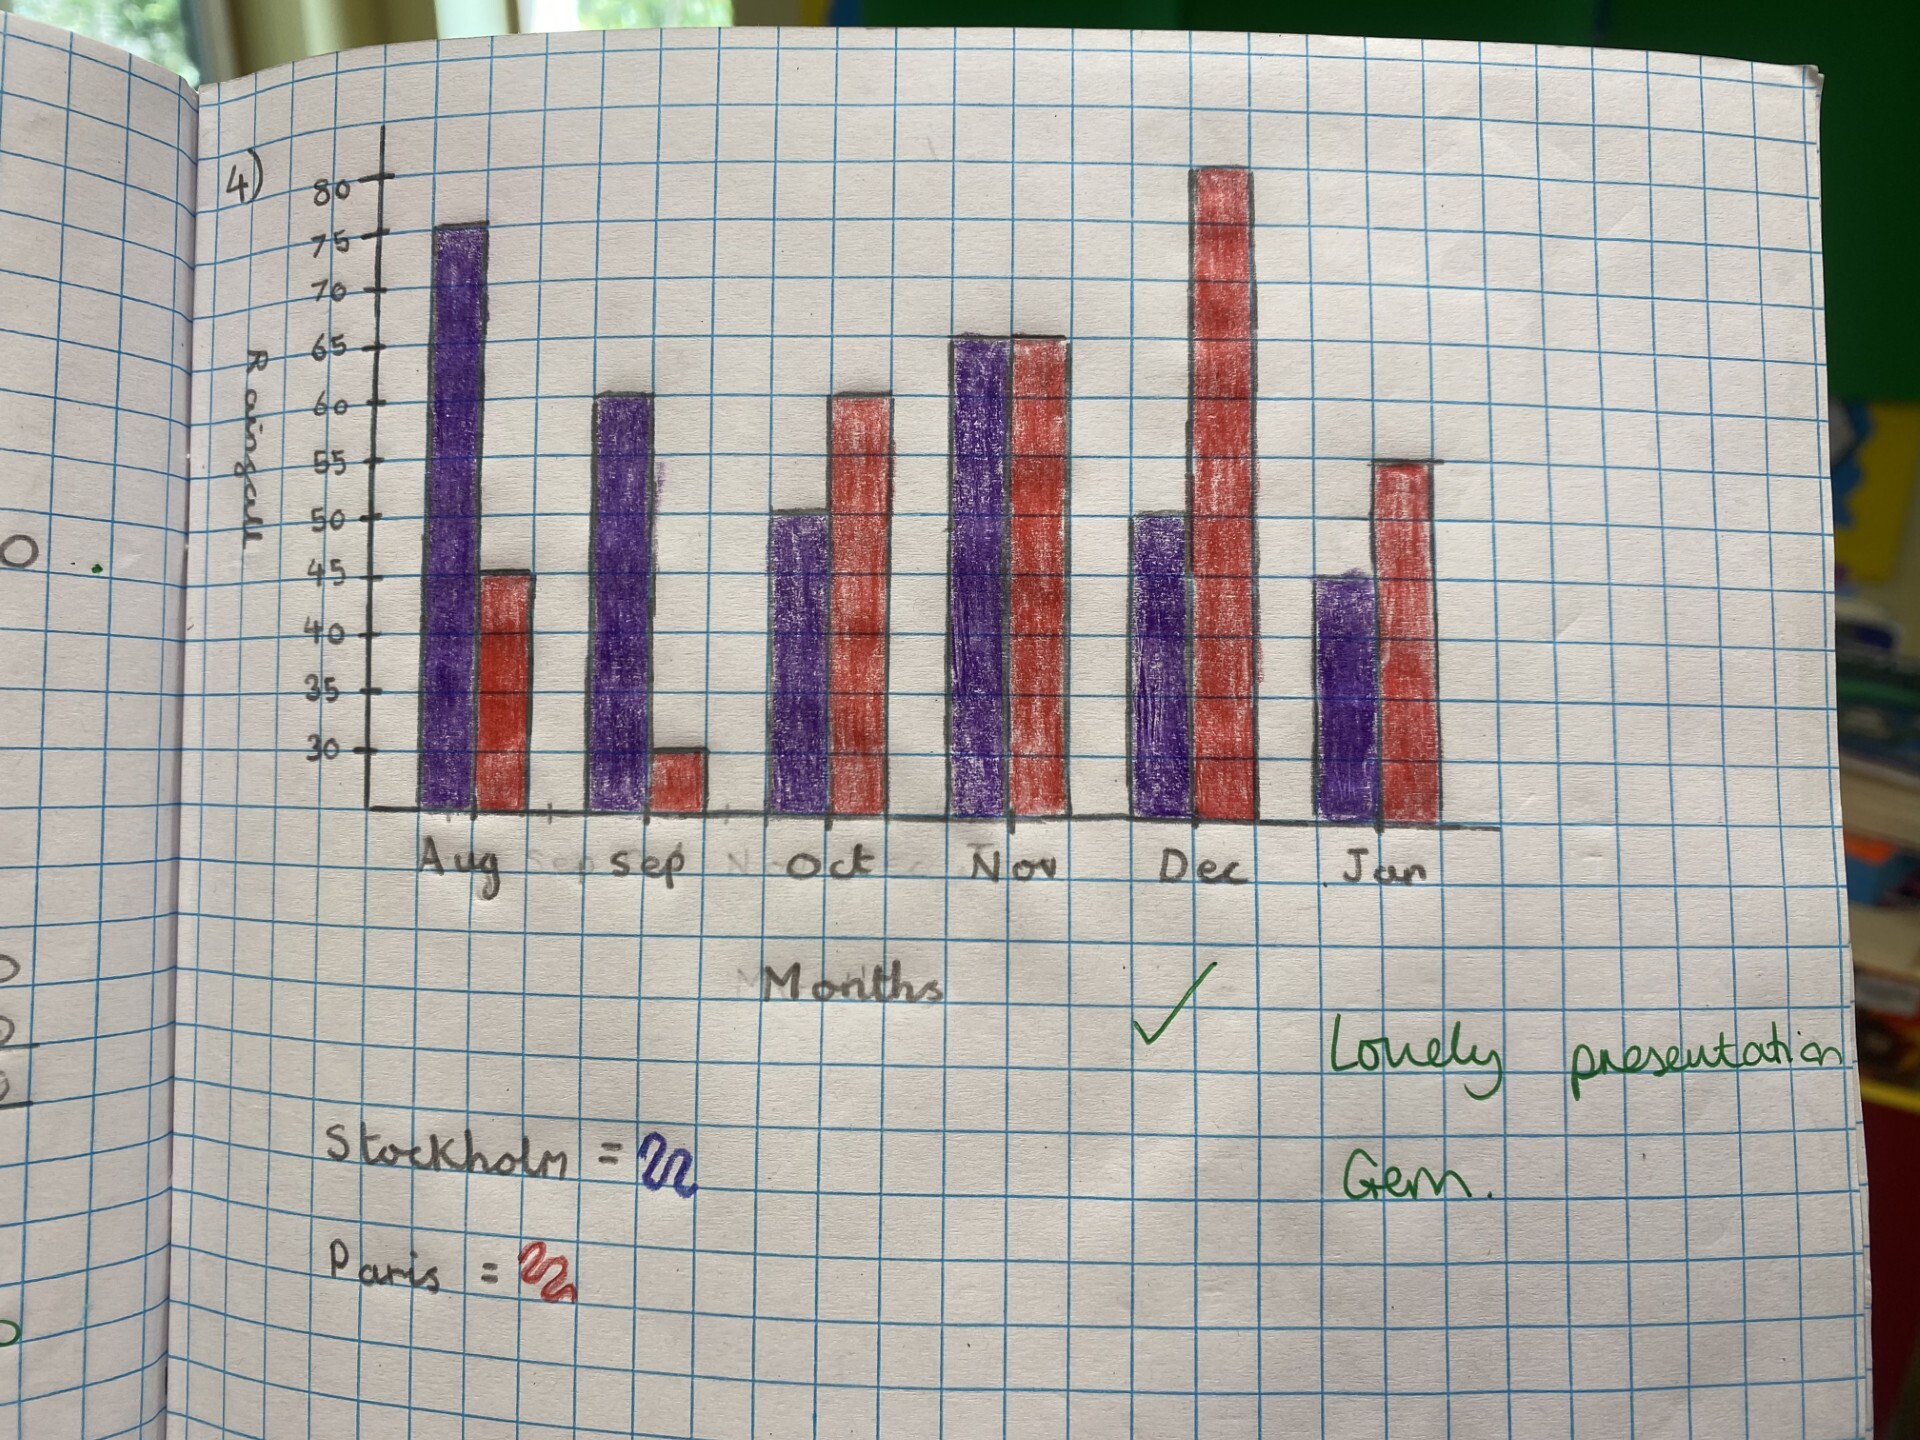 4)
80
75
70
65
60
55
50
45
40
35
30
Rainfall
Aug Sep Oct Nov Dec Jan
Months
Lovely presentation
Gem.
Stockholm =
Paris =